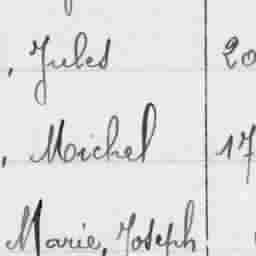 , Jules 20
, Michel 17
Marie, Joseph